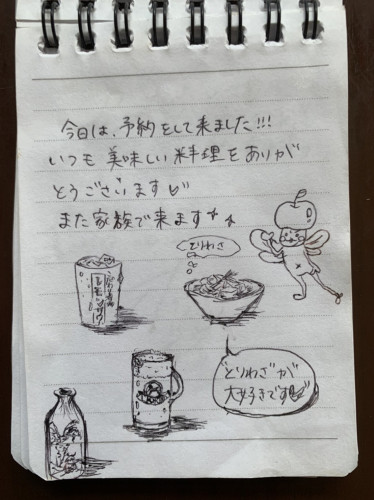 今日は、予約をして来ました!!!
いつも 美味しい料理をありが
とうございます♡
また家族で来ます
とりわさ
"とりわさ"が
大好きです